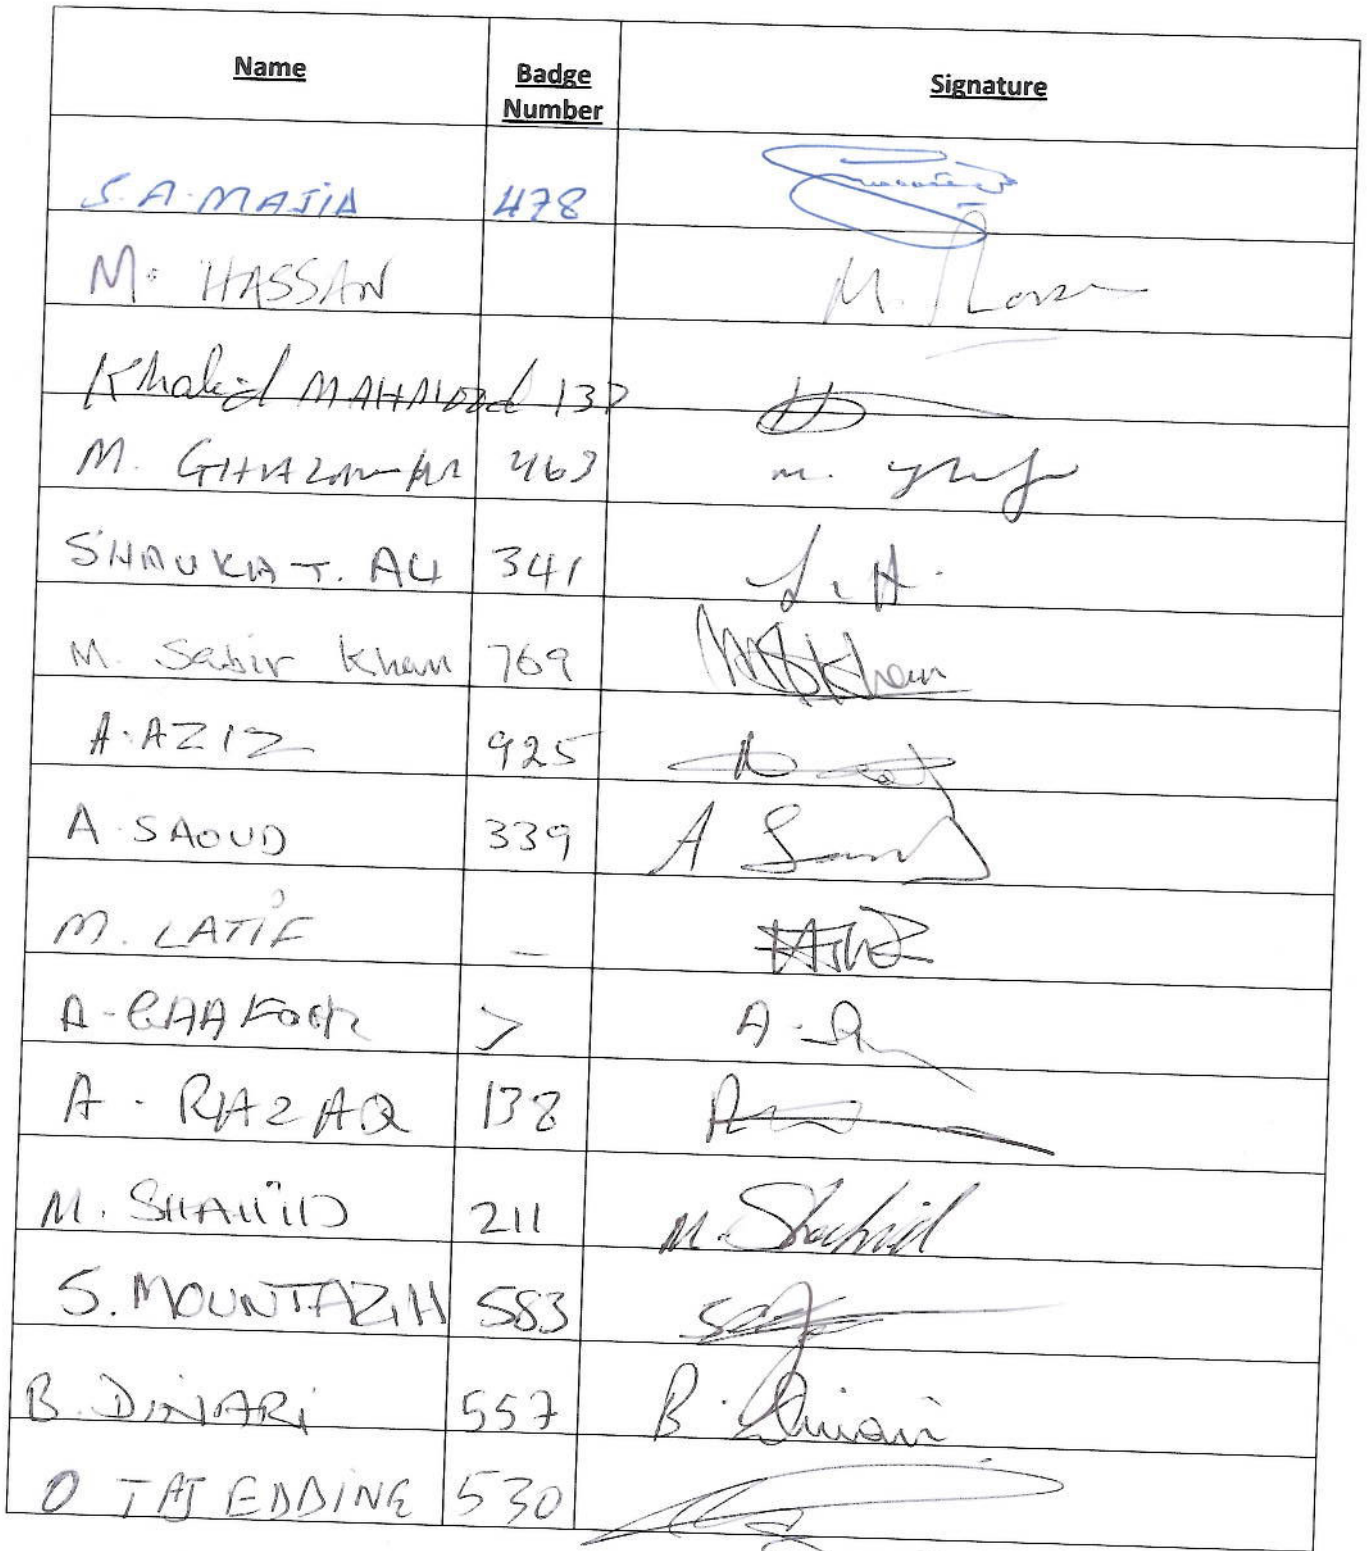 Name Badge Number Signature
S. A. MAJID 478
M. HASSAN M. Hassan
Khalid MAHMOOD 137
M. 463 m.
SHAUKAT. ALI 341 S. A.
M. Sabir Khan 769 MSKhan
A. AZIZ 925
A SAOUD 339 A Saoud
M. LATIF –
A. GHAFOOR A.
A. RAZAQ 138
M. SHAHID 211 M. Shahid
S. MOUNTAZIH 583
B. DINARI 557 B. Dinari
O TAJ EDDINE 530